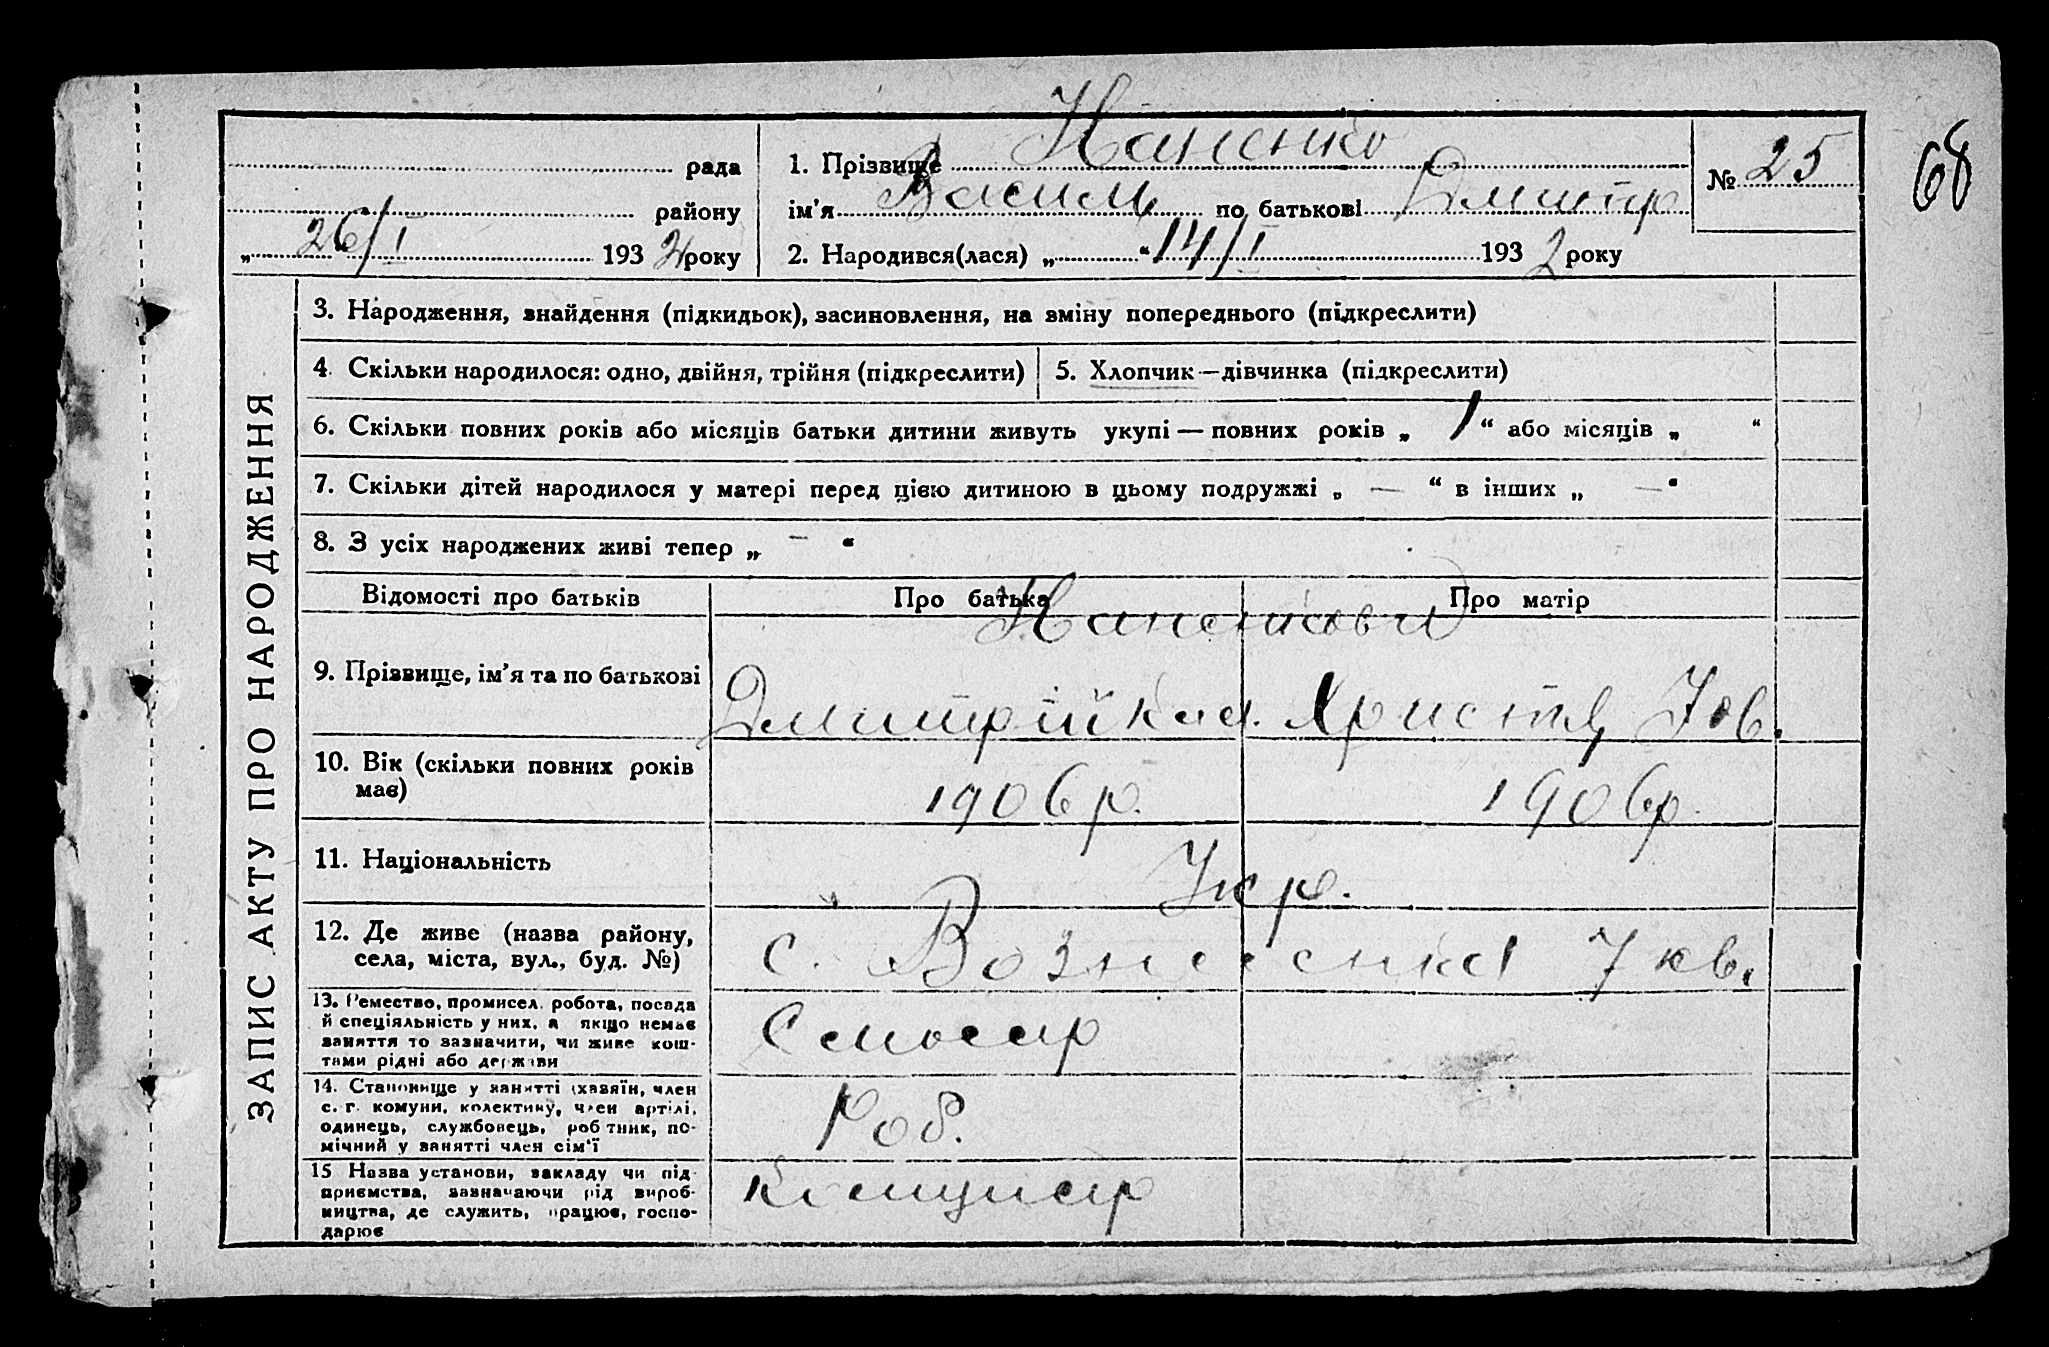 68
рада
району
„ 26/I 1932 року
1. Прізвище Наненко
ім'я Василь по батькові Дмитр
2. Народився(лася) „ “ 14/I 1932 року
№ 25
ЗАПИС АКТУ ПРО НАРОДЖЕННЯ
3. Народження, знайдення (підкидьок), засиновлення, на зміну попереднього (підкреслити)
4. Скільки народилося: одно, двійня, трійня (підкреслити)
5. Хлопчик—дівчинка (підкреслити)
6. Скільки повних років або місяців батьки дитини живуть укупі — повних років „ 1 “ або місяців „ “
7. Скільки дітей народилося у матері перед цією дитиною в цьому подружжі „ — “ в інших „ — “
8. З усіх народжених живі тепер „ — “
Відомості про батьків
Про батька
Про матір
Наненкови
9. Прізвище, ім'я та по батькові
Дмитрій
Христя Іов.
10. Вік (скільки повних років
має)
1906 р.
1906р.
11. Національність
Укр.
12. Де живе (назва району,
села, міста, вул., буд. №)
с. Вознесенка 7 кв.
13. Ремество, промисел, робота, посада
й спеціяльність у них, а якщо немає
заняття то зазначити, чи живе кош-
тами рідні або держави
Слюсар
14. Становище у занятті (хазяїн, член
с.-г. комуни, колективу, член артілі,
одинець, службовець, робітник, по-
мічний у занятті член сім'ї
Роб.
15 Назва установи, закладу чи під-
приємства, зазначаючи рід вироб-
ництва, де служить, працює, госпо-
дарює
Комунар